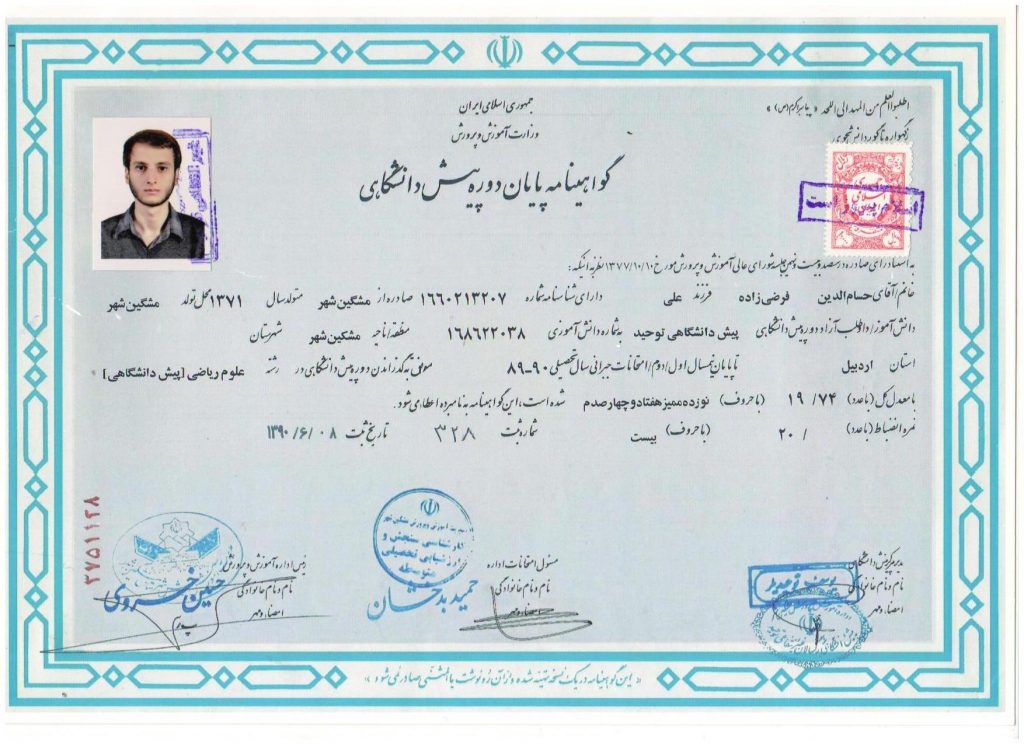 جمهوری اسلامی ایران
وزارت آموزش و پرورش
اطلبوا العلم من المهد الی اللحد «پیامبر اکرم (ص)»
زگهواره تا گور دانش بجوی
گواهینامه پایان دوره پیش دانشگاهی
به استناد رای صادره در سیصد و بیست و نهمین جلسه شورای عالی آموزش و پرورش مورخ ۱۳۷۷/۱۰/۱۰ نظر به اینکه:
خانم/آقای حسام الدین فرضی زاده فرزند علی دارای شناسنامه شماره ۱۶۶۰۲۱۳۲۰۷ صادره از مشگین شهر متولد سال ۱۳۷۱ محل تولد مشگین شهر
دانش آموز/داوطلب آزاد دوره پیش دانشگاهی پیش دانشگاهی توحید به شماره دانش آموزی ۱۶۸۶۲۲۰۳۸ منطقه/ناحیه مشکین شهر شهرستان
استان اردبیل تا پایان نیمسال اول/دوم/امتحانات جبرانی سال تحصیلی ۹۰-۸۹ موفق به گذراندن دوره پیش دانشگاهی در رشته علوم ریاضی [پیش دانشگاهی]
با معدل کل (با عدد) ۱۹/۷۴ (با حروف) نوزده ممیز هفتاد و چهار صدم شده است، این گواهینامه به نامبرده اعطا می شود.
نمره انضباط (با عدد) ۲۰/ (با حروف) بیست شماره ثبت ۳۲۸ تاریخ ثبت ۱۳۹۰/۶/۰۸
۳۷۵۱۱۲۸
مدیر مرکز پیش دانشگاهی
نام و نام خانوادگی
امضاء و مهر
مسئول امتحانات اداره
نام و نام خانوادگی
امضاء و مهر
کارشناسی سنجش و
ارزشیابی تحصیلی
متوسطه
حمید بدخشان
رئیس اداره آموزش و پرورش
نام و نام خانوادگی
امضاء و مهر
حسین خسروی
«این گواهینامه در یک نسخه تهیه شده و از آن رونوشت یا المثنی صادر نمی شود»